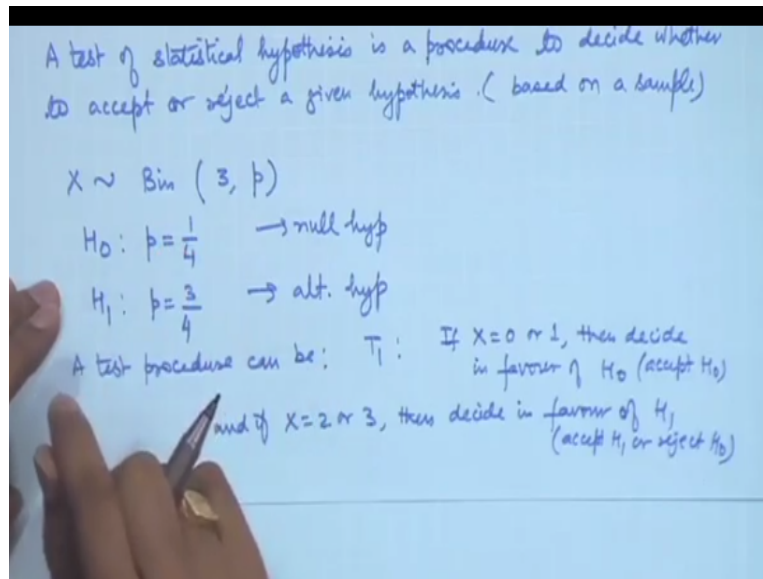 A test of statistical hypothesis is a procedure to decide whether
to accept or reject a given hypothesis. ( based on a sample)
X ~ Bin ( 3, p)
H₀ : p = 1/4 → null hyp
H₁ : p = 3/4 → alt. hyp
A test procedure can be : T₁ : If X=0 or 1, then decide
in favour of H₀ (accept H₀)
and if X = 2 or 3, then decide in favour of H₁
(accept H₁ or reject H₀)